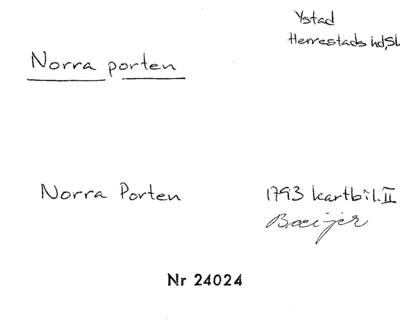 Ystad
Herrestads hd, Sk
Norra porten
Norra Porten 1793 kartbil. II
Nr 24024